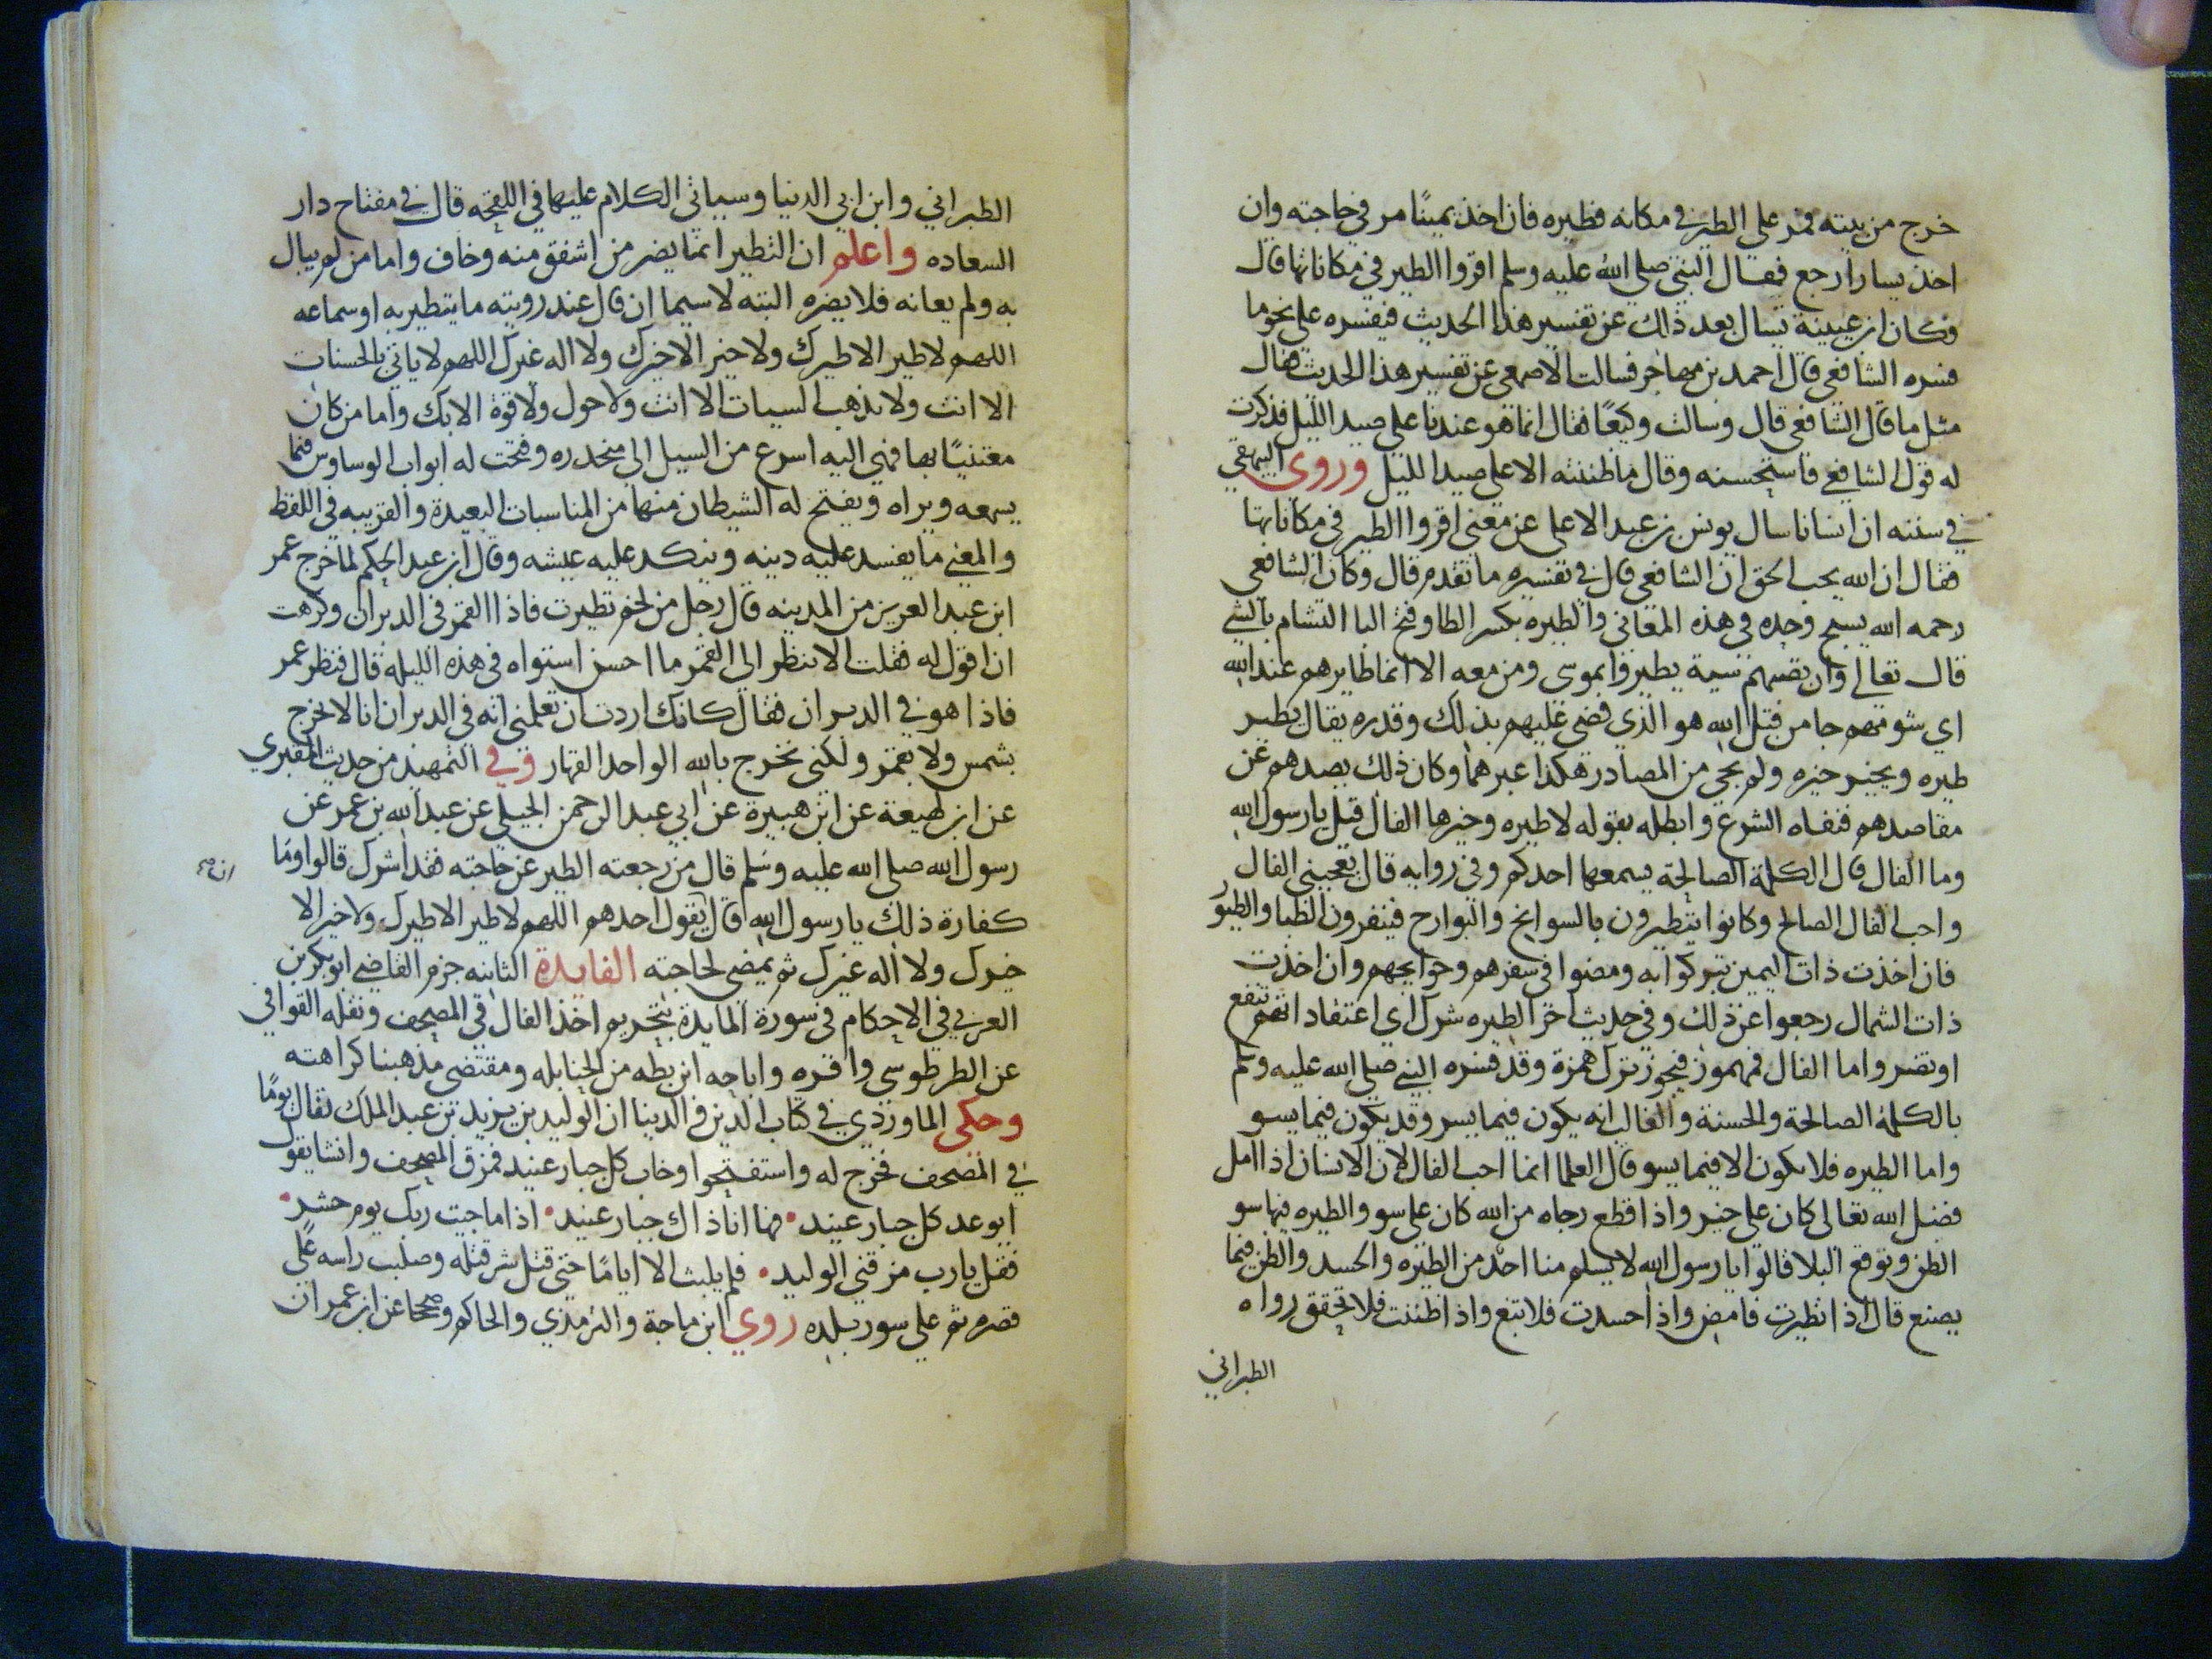 خرج من بيته فمر على الطير في مكانه فطيره فان اخذ يمينًا مر في حاجته وان
اخذ يسارا رجع فقال النبي صلى الله عليه وسلم اقروا الطير في مكاناتها قال
وكان ابن عيينة يسال بعد ذلك عن تفسير هذا الحديث فيفسره على نحو ما
فسره الشافعي قال احمد بن مهاجر فسالت الاصمعي عن تفسير هذا الحديث فقال
مثل ما قال الشافعي قال وسالت وكيعًا فقال انما هو عندنا على صيد الليل فذكرت
له قول الشافعي فاستحسنه وقال ما ظننته الا على صيد الليل وروى البيهقي
في سننه ان انسانا سال يونس بن عبد الاعلى عن معنى اقروا الطير في مكاناتها
فقال ان الله يحب الحق ان الشافعي قال في تفسيره ما تقدم قال وكان الشافعي
رحمه الله نسيج وحده في هذه المعاني والطيره بكسر الطا وفتح اليا التشام بالشي
قال تعالى وان تصبهم سيية يطيروا بموسى ومن معه الا انما طايرهم عند الله
اي شومهم جا من قبل الله هو الذي قضى عليهم بذلك وقدره يقال تطير
طيره وتخير خيره ولم يجي من المصادر هكذا غيرهما وكان ذلك يصدهم عن
مقاصدهم فنفاه الشرع وابطله بقوله لا طيره وخيرها الفال قيل يا رسول الله
وما الفال قال الكلمة الصالحة يسمعها احدكم وفي روايه قال يعجبني الفال
واحب الفال الصالح وكانوا يتطيرون بالسوانح والبوارح فينفرون الظبا والطيور
فان اخذت ذات اليمين تبركوا به ومضوا في سفرهم وحوايجهم وان اخذت
ذات الشمال رجعوا عن ذلك وفي حديث اخر الطيره شرك اي اعتقاد انها تنفع
او تضر واما الفال فمهموز فيجوز ترك همزة وقد فسره النبي صلى الله عليه وسلم
بالكلمة الصالحة والحسنة والغالب انه يكون فيما يسر وقد يكون فيما يسو
واما الطيره فلا تكون الا فيما يسو قال العلما انما احب الفال لان الانسان اذا امل
فضل الله تعالى كان على خير واذا قطع رجاه من الله كان على سو والطيره فيها سو
الظن وتوقع البلا قالوا يا رسول الله لا يسلم منا احد من الطيره والحسد والظن فما
يصنع قال اذا تطيرت فامض واذا حسدت فلا تبغ واذا ظننت فلا تحقق رواه
الطبراني
الطبراني وابن ابي الدنيا وسياتي الكلام عليها في اللقحه قال في مفتاح دار
السعاده واعلم ان التطير انما يضر من اشفق منه وخاف واما من لم يبال
به ولم يعانه فلا يضره البته لا سيما ان قال عند رويته ما يتطير به او سماعه
اللهم لا طير الا طيرك ولا خير الا خيرك ولا اله غيرك اللهم لا ياتي بالحسنات
الا انت ولا يذهب السيات الا انت ولا حول ولا قوة الا بك واما من كان
معتنيًا بها فهي اليه اسرع من السيل الى منحدره وفتحت له ابواب الوساوس فيما
يسمعه ويراه ويفتح له الشيطان منها من المناسبات البعيدة والقريبه في اللفظ
والمعنى ما يفسد عليه دينه وينكد عليه عيشه وقال ابن عبد الحكم لما خرج عمر
ابن عبد العزيز من المدينه قال رجل من لخم تطيرت فاذا القمر في الدبران وكرهت
ان اقول له فقلت الا تنظر الى القمر ما احسن استواه في هذه الليله قال فنظر عمر
فاذا هو في الدبران فقال كانك اردت ان تعلمني انه في الدبران انا لا نخرج
بشمس ولا بقمر ولكني نخرج بالله الواحد القهار وفي التمهيد من حديث المقبري
عن ابن لهيعة عن ابن هبيرة عن ابي عبد الرحمن الجبلي عن عبد الله بن عمر عن
رسول الله صلى الله عليه وسلم قال من رجعته الطير عن حاجته فقد اشرك قالوا وما
كفارة ذلك يا رسول الله قال يقول احدهم اللهم لا طير الا طيرك ولا خير الا
خيرك ولا اله غيرك ثم يمضي لحاجته الفايدة الثانيه جزم القاضي ابو بكر بن
العربي في الاحكام في سورة المايدة بتحريم اخذ الفال في المصحف ونقله القرافي
عن الطرطوسي واقره واباحه ابن بطه من الحنابله ومقتضى مذهبنا كراهته
وحكى الماوردي في كتاب الدين في الدينا ان الوليد بن يزيد بن عبد الملك تفال يومًا
في المصحف فخرج له واستفتحوا وخاب كل جبار عنيد فمزق المصحف وانشا يقول
اتوعد كل جبار عنيد • فها انا ذاك جبار عنيد • اذا ما جيت ربك يوم حشر •
فقل يا رب مزقني الوليد • فلم يلبث الا ايامًا حتى قتل شر قتله وصلب راسه على
قصره ثم على سور بلده روي ابن ماجة والترمذي والحاكم وصححا عن ابن عمر ان